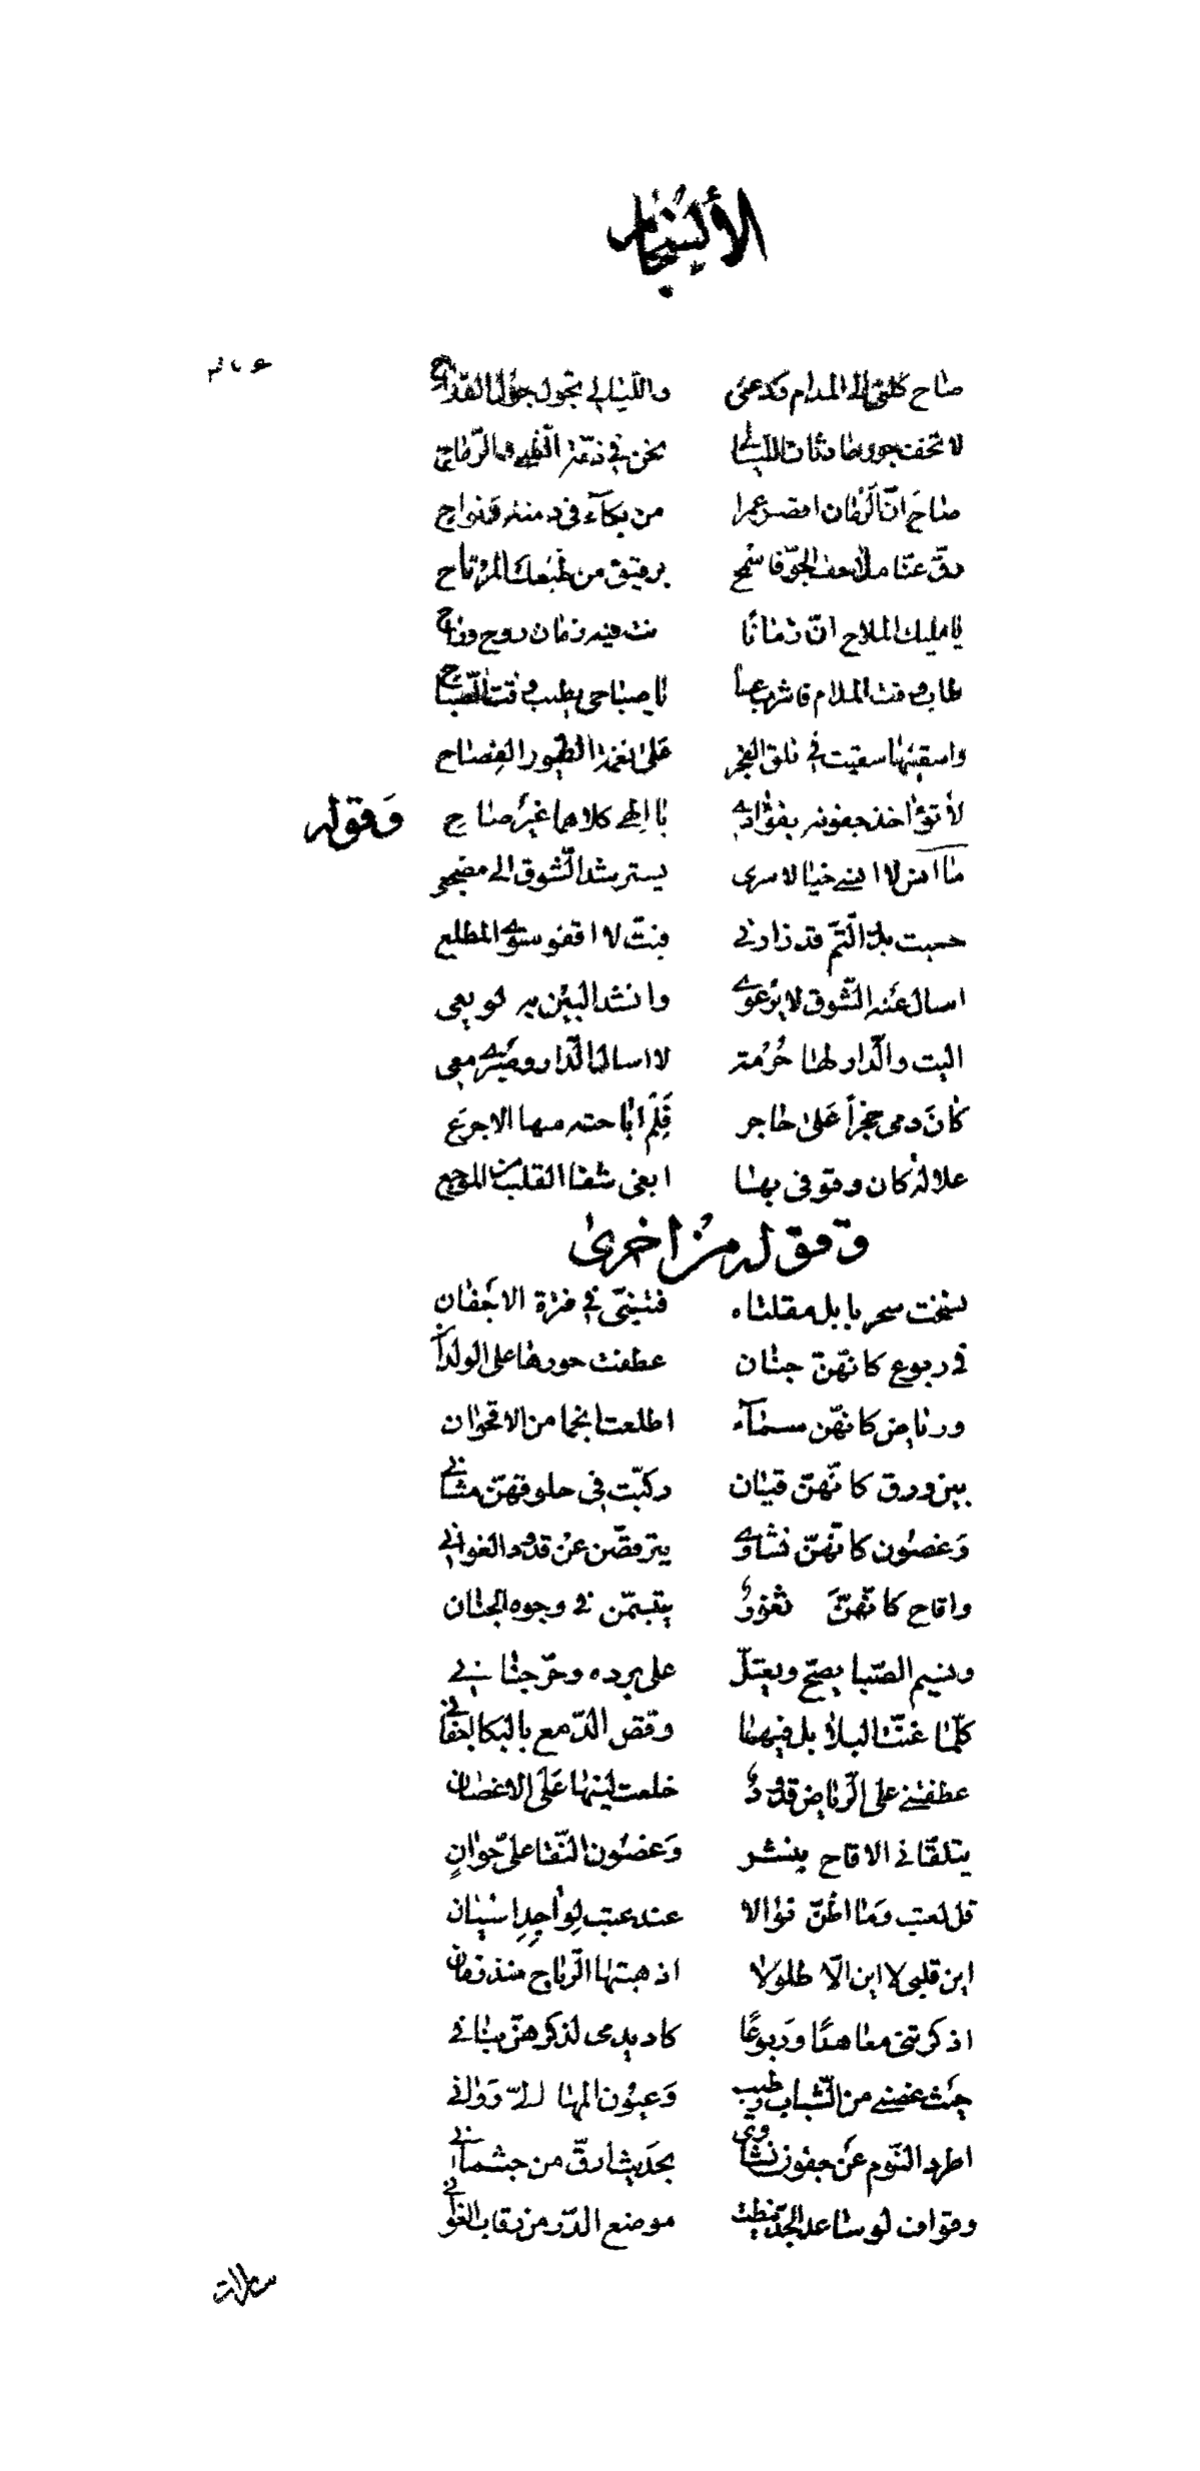 صاح كلني الى المدام ودعني والليالي تجول جول القداح
لا تخف جور حادثات الليالي نحن في ذمة الظبي والرماح
صاح ان الزمان اقصر عمرا من بكاء في دمنة ونواح
رق عنا ملاحف الجو فاسمح برقيق من طبعك المرتاح
يا مليك الملاح ان زمانا انت فيه زمان روح وراح
طاب وقت المدام فاشرب عليها يا صباحي يطيب وقت الصباح
واسقنيها سقيت في فلق الفجر على نغمة الطيور الفصاح
لا تؤاخذ جفونه بفؤادي يا الهي كلاهما غير صاح
وقوله
ما انس لا انسى خيالا سرى يسترشد الشوق الى مضجعي
حسبت بدر التم قد زارني فبت لا اقفو سوى المطلع
اسال عنه الشوق لا يرعوي وانشد البين به لو يعي
اليت والدار لها حرمة لا اسال الدار وصبري معي
كان دمي حجرا على حاجر فلم اباحته مها الاجرع
علالة كان وقوفي بها ابغي شفا القلب من الموجع
وقوله من اخرى
نسخت سحر بابل مقلتاه فتنبى في فترة الاجفان
في ربوع كانهن جنان عطفت حورها على الولدان
ورياض كانهن سماء اطلعت انجما من الاقحوان
بين ورق كانهن قيان ركبت في حلوقهن مثاني
وغصون كانهن نشاوى يترقصن عن قدود الغواني
واقاح كانهن ثغور يتبسمن في وجوه الجنان
ونسيم الصبا يصح ويعتل على برده وحر جناني
كلما غنت البلابل فيها رقص الدمع بالبكا اجفاني
عطفتني على الرياض قدود خلعت لينها على الاغصان
يتلقاني الاقاح بنشر وغصون النقا علي حوان
قل لعتب وما اظن نوالا عند عتب لواجد اسيان
اين قلبي لا اين الا طلولا اذهبتها الرياح منذ زمان
اذكرتني معاهدا وربوعا كاد يدمى لذكرهن بناني
حيث غصني من الشباب رطيب وعيون المها الي رواني
اطرد النوم عن جفون نشاوى بحديث ارق من جثماني
وقواف لو ساعد الجد نيطت موضع الدر من رقاب الغواني